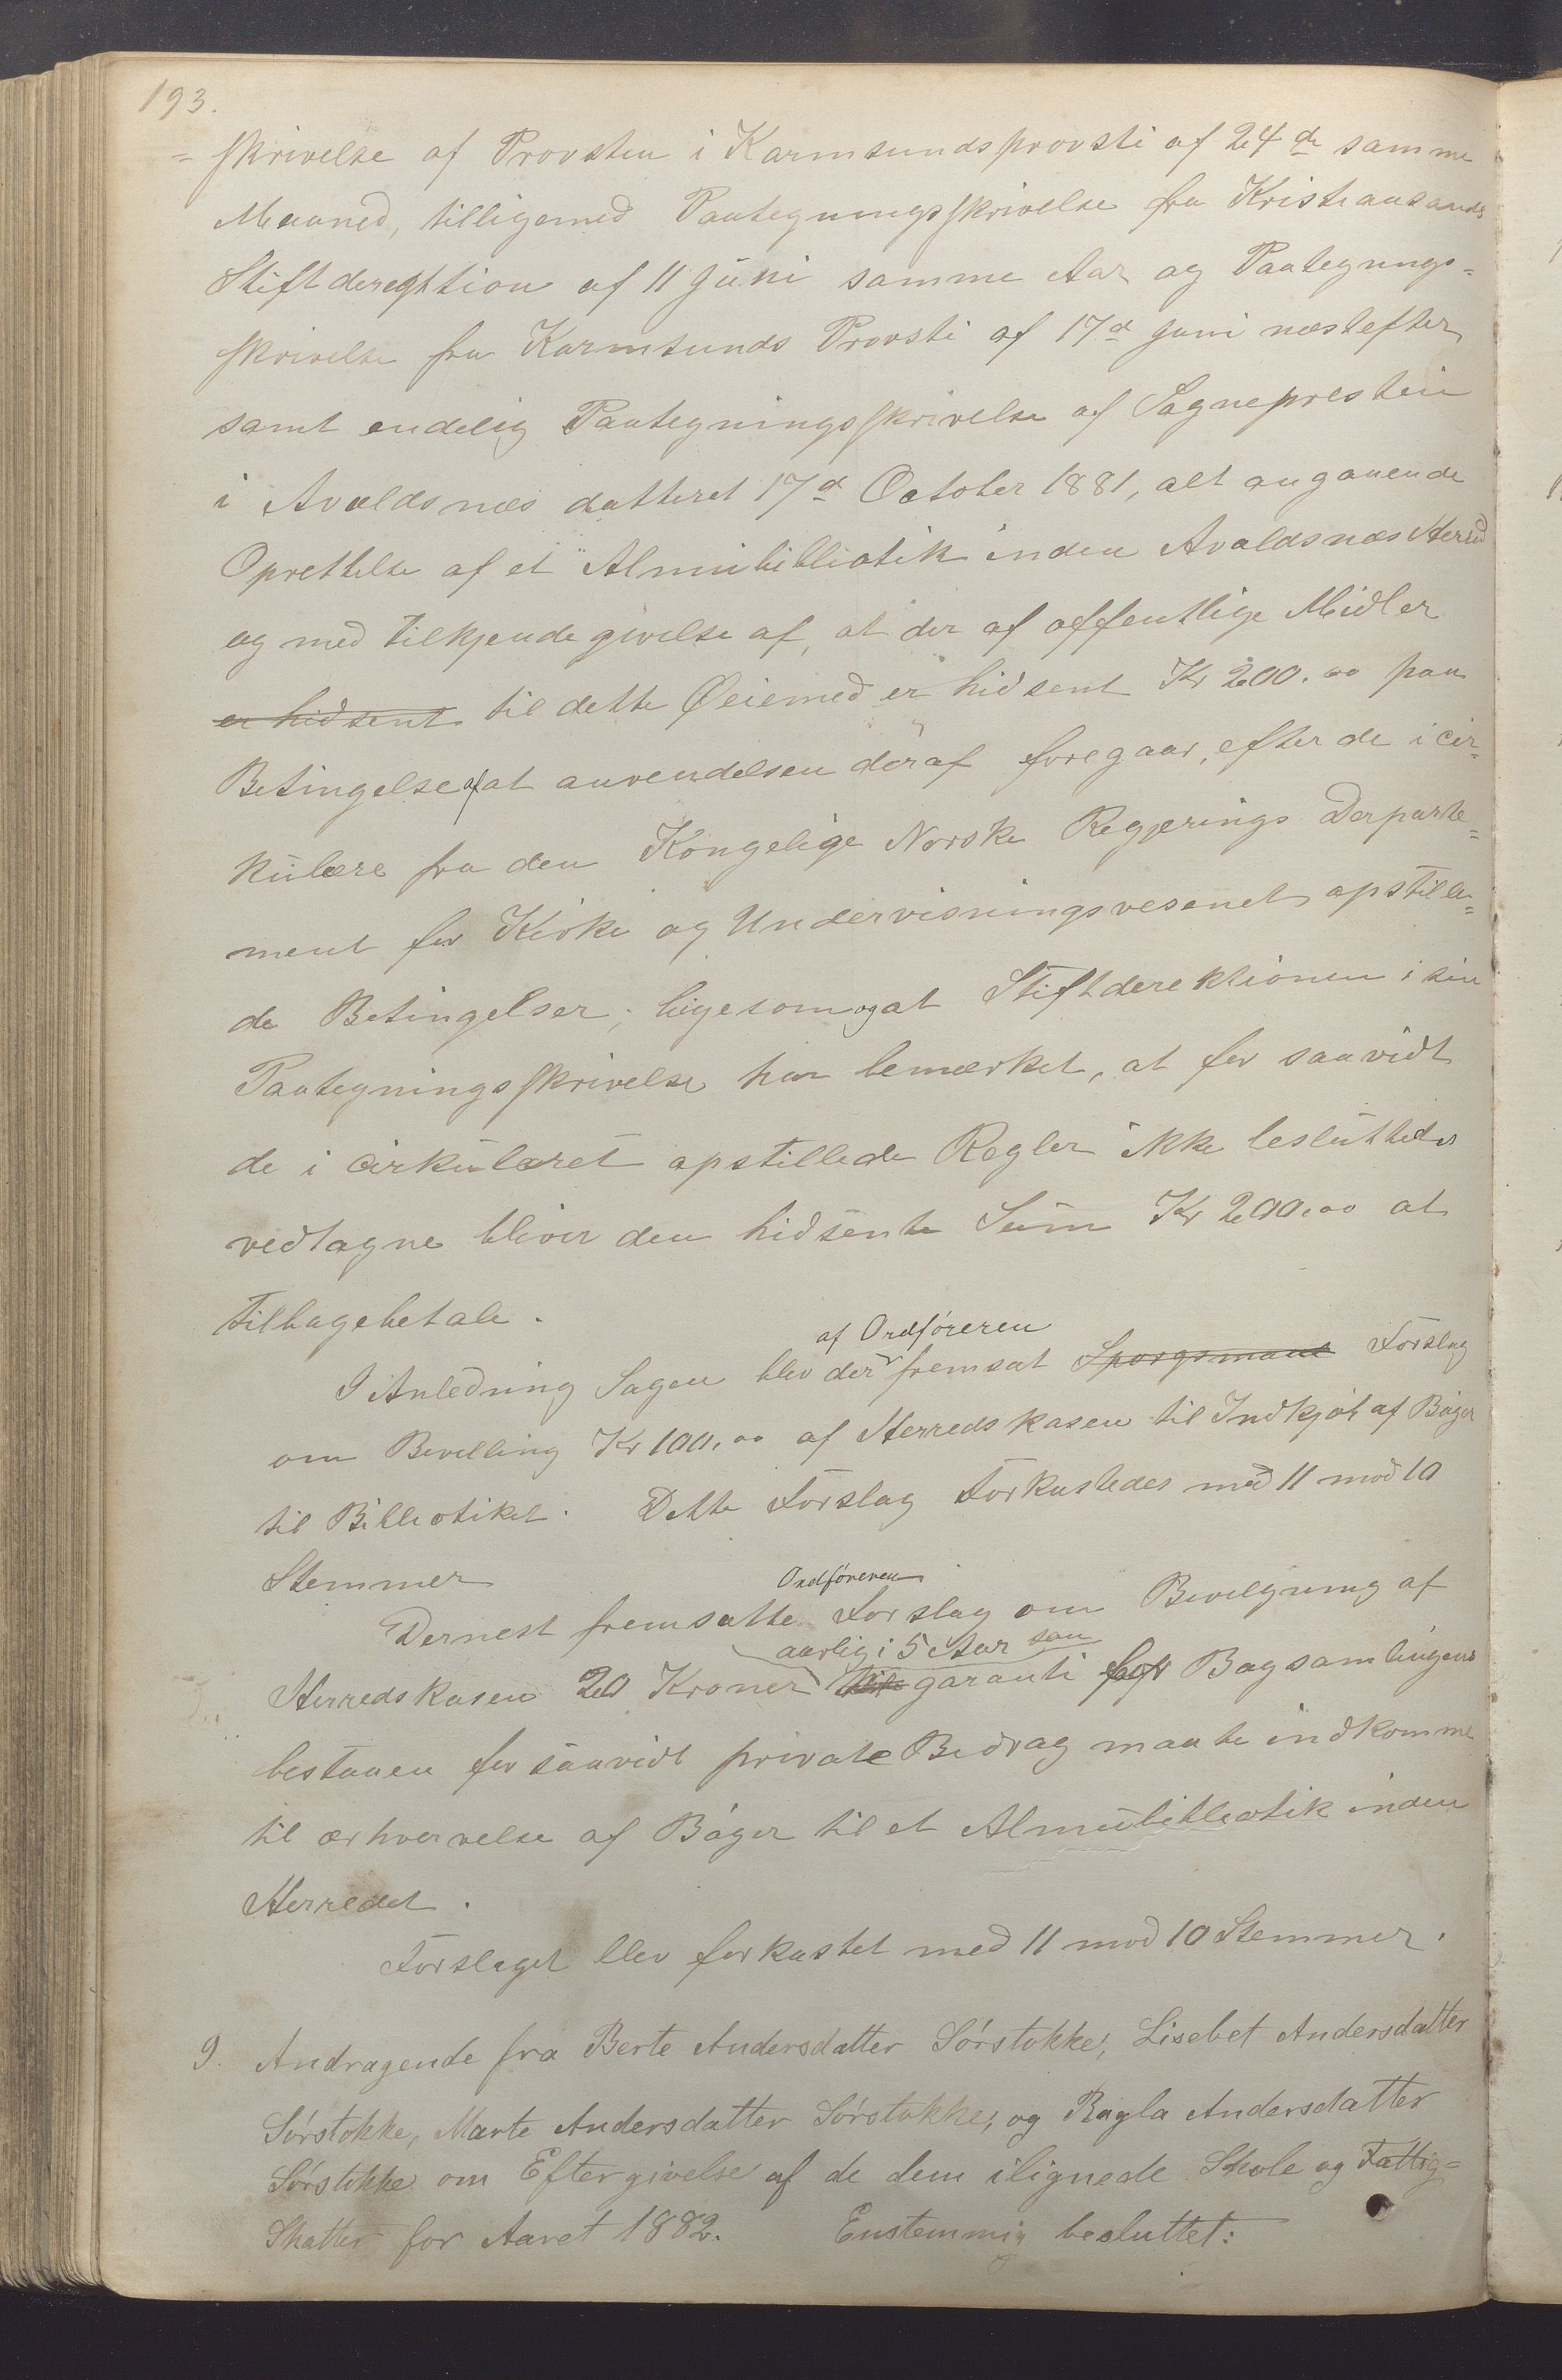 193.
= skrivelse af Provsten i Karmsundsprovsti af 24 de samme
Maaned, tilligemed Paategningsskrivelse fra Kristiansands
Stiftderektion af 11 Juni samme Aar og Paategnings=
skrivelse fra Karmsunds Provsti af 17d Juni næstefter
samt endelig Paategningsskrivelse af Sognepresten
i Avaldsnæs datteret 17d October 1881, alt angaaende
Oprettelse af et Almubibliotik inden Avaldsnæs Herred
og med tilkjendegivelse af, at der af offentlige Midler
er hidsent til dette Øeiemed er hidsent Kr 200.00 paa
Betingelse af at anvendelsen deraf foregaar, efter de i cir=
kulære fra den Kongelige Norske Regjerings Departe=
ment for Kirke og Undervisningsvesenet opstille=
de Betingelser; ligesom og at Stiftderektionen i sin
Paategningsskrivelse har bemærket, at for saavidt
de i cirkulæret opstillede Regler ikke besluttedes
vedtagne bliver den hidsente Sum Kr 200.00 at
tilbagebetale.
af Ordføreren
I Anledning Sagen blev der fremsat Spørgsmaal Forslag
om Bevilling Kr 100.00 af Herredskasen til Indkjøb af Bøger
til Bibliotiket. Dette Forslag Forkastedes med 11 mod 10
Stemmer
Ordføreren
Dernest fremsatte Forslag om Bevilgning af
aarlig i 5 Aar som
Herredskasen 20 Kroner garanti for Bogsamlingens
bestaaen for saavidt private Bidrag maatte indkomme
til ærhvervelse af Bøger til et Almubibliotik inden
Herredet.
Forslaget blev forkastet med 11 mod 10 Stemmer.
9. Andragende fra Berte Andersdatter Sørstokke, Lisebet Andersdatter
Sørstokke, Marte Andersdatter Sørstokke, og Ragla Andersdatter
Sørstokke om Eftergivelse af de dem ilignede Skole og Fattig=
Skatter for Aaret 1882. Enstemmig besluttet: